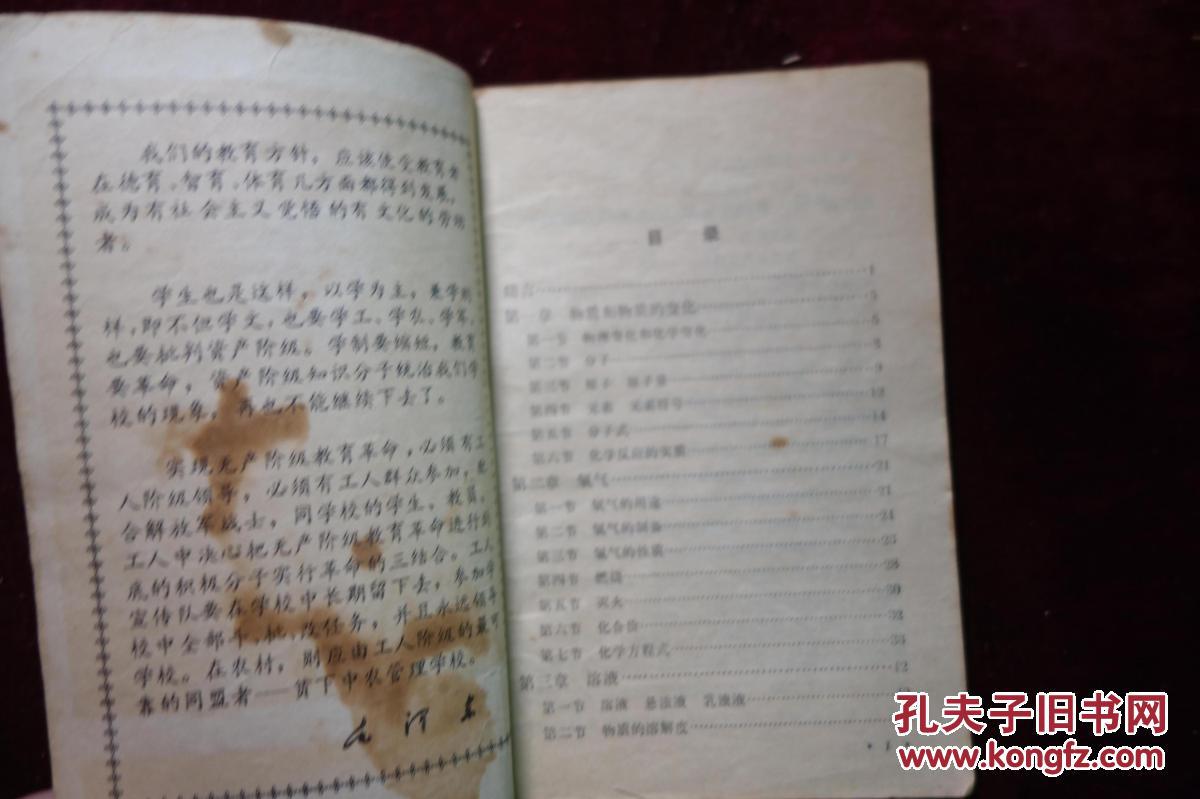 我们的教育方针，应该使受教育者
在德育、智育、体育几方面都得到发展，
成为有社会主义觉悟的有文化的劳动
者。
学生也是这样，以学为主，兼学别
样，即不但学文，也要学工、学农、学军，
也要批判资产阶级。学制要缩短，教育
要革命，资产阶级知识分子统治我们学
校的现象，再也不能继续下去了。
实现无产阶级教育革命，必须有工
人阶级领导，必须有工人群众参加，配
合解放军战士，同学校的学生、教员、
工人中决心把无产阶级教育革命进行到
底的积极分子实行革命的三结合。工人
宣传队要在学校中长期留下去，参加学
校中全部斗、批、改任务，并且永远领导
学校。在农村，则应由工人阶级的最可
靠的同盟者——贫下中农管理学校。
毛泽东
目 录
绪言……1
第一章 物质和物质的变化……5
第一节 物理变化和化学变化……5
第二节 分子……8
第三节 原子 原子量……9
第四节 元素 元素符号……13
第五节 分子式……14
第六节 化学反应的实质……17
第二章 氧气……21
第一节 氧气的用途……21
第二节 氧气的制备……24
第三节 氧气的性质……25
第四节 燃烧……28
第五节 灭火……30
第六节 化合价……32
第七节 化学方程式……38
第三章 溶液……42
第一节 溶液 悬浊液 乳浊液
第二节 物质的溶解度
· 1
孔夫子旧书网
www.kongfz.com